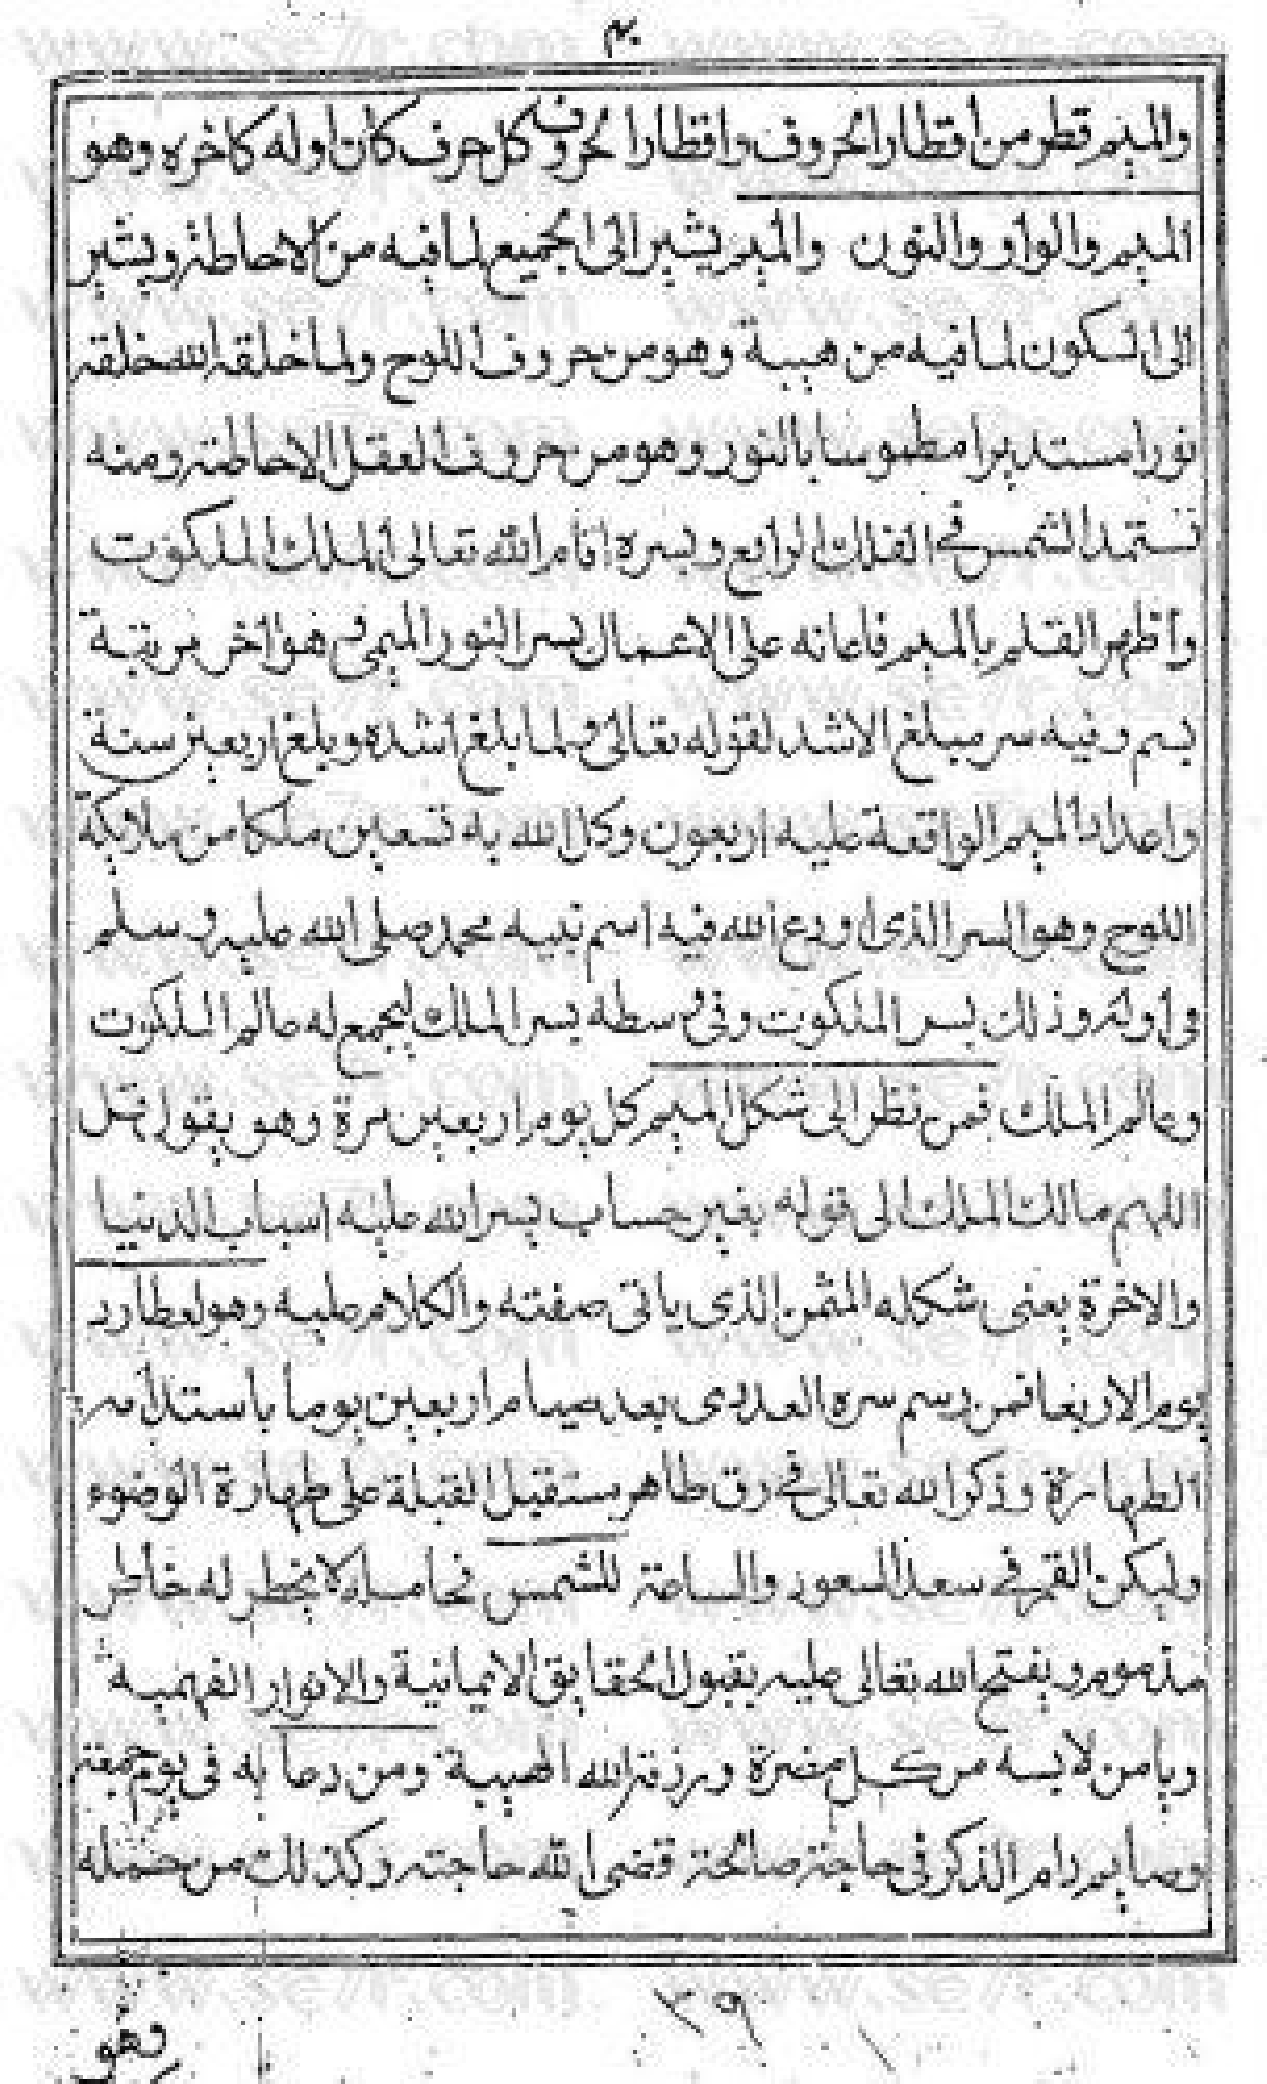 والميم قطر من أقطار الحروف واقطار الحروف كل حرف كان اوله كاخره وهو
الميم والواو والنون والميم يشير الى الجميع لما فيه من الاحاطة ويشير
الى السكون لما فيه من هيبة وهو من حروف اللوح ولما خلقه الله خلقه
نورا مستديرا مطموسا بالنور وهو من حروف العقل الاحاطته ومنه
تستمد الشمس في الفلك الرابع وبسره اقام الله تعالى الملك الملكوت
وأظهر القلم بالميم فاعانه على الاعمال بسر النور الميمي وهو اخر مرتبة
بسم وفيه سر مبلغ الاشد لقوله تعالى ولما بلغ اشده وبلغ اربعين سنة
واعداد الميم الواقعة عليه اربعون وكل الله به تسعين ملكا من ملايكة
اللوح وهو السر الذي اودع الله فيه اسم نبيه محمد صلى الله عليه وسلم
في اوله وذلك بسر الملكوت وفي وسطه بسر الملك ليجمع له عالم الملكوت
وعالم الملك فمن نظر الى شكل الميم كل يوم اربعين مرة وهو يقول قل
اللهم مالك الملك الى قوله بغير حساب يسر الله عليه اسباب الدنيا
والاخرة يعني شكله المثمن الذي ياتي صفته والكلام عليه وهو لعطارد
يوم الاربعا فمن رسم سره العددي بعد صيام اربعين يوما باستدامه
الطهارة وذكر الله تعالى في رق طاهر مستقبل القبلة على طهارة الوضوء
وليكن القمر في سعد السعود والساعة للشمس فحامله لا يخطر له خاطر
مذموم ويفتح الله تعالى عليه بقبول الحقايق الايمانية والانوار الفهمية
ويامن لابسه من كل مضرة ورزقه الله الهيبة ومن دعا به في يوم جمعة
وصايم دام الذكر في حاجة صالحة قضى الله حاجته وكذلك من حمله
وهو
٣٩